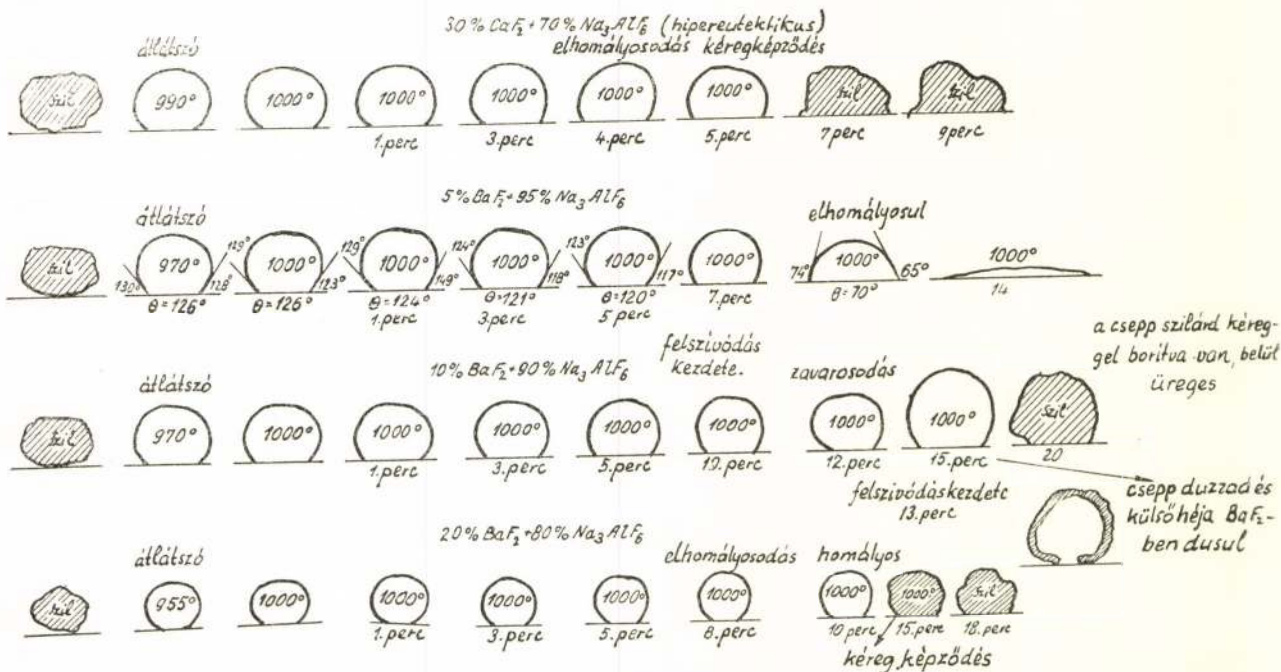 30% CaF₂+70% Na₃AlF₆ (hipereutektikus)
átlátszó elhomályosodás kéregképződés
szil 990° 1000° 1000° 1000° 1000° 1000° szil szil
1.perc 3.perc 4.perc 5.perc 7perc 9perc
5%BaF₂+95% Na₃AlF₆
átlátszó elhomályosul
szil 130° 970° 128° 129° 1000° 123° 129° 1000° 149° 124° 1000° 118° 123° 1000° 117° 1000° 74° 1000° 65° 1000°
θ=126° θ=126° θ=124° θ=121° θ=120° 7.perc θ=70° 14
1.perc 3.perc 5perc
a csepp szilárd kéreg-
gel boritva van, belül
üreges
felszívódás
kezdete.
10% BaF₂+90% Na₃AlF₆
átlátszó zavarosodás
szil 970° 1000° 1000° 1000° 1000° 1000° 1000° 1000° szil
1.perc 3.perc 5.perc 10.perc 12.perc 15.perc 20
felszívódáskezdete
13.perc
csepp duzzad és
külsőhéja BaF₂-
ben dusul
20% BaF₂+80% Na₃AlF₆
átlátszó elhomályosodás homályos
szil 955° 1000° 1000° 1000° 1000° 1000° 1000° 1000° szil
1.perc 3.perc 5.perc 8.perc 10perc 15.perc 18.perc
kéreg képződés